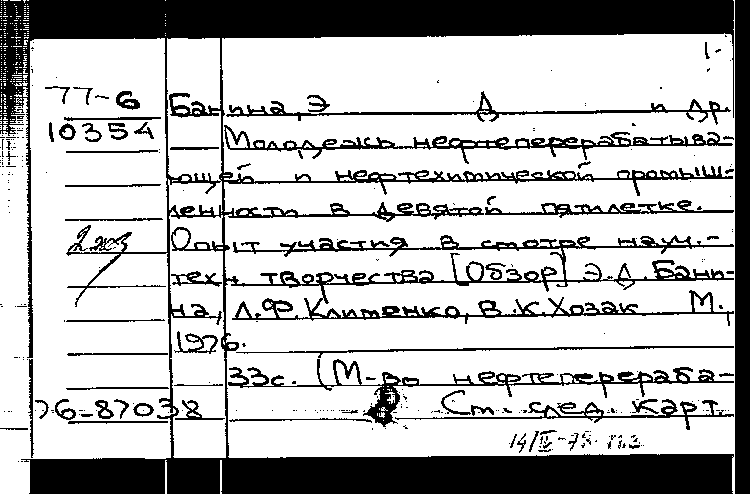 1-
77-6 Банина, Э Д и др.
10354 Молодежь нефтеперерабатыва-
ющей и нефтехимической промыш-
ленности в девятой пятилетке.
2 экз Опыт участия в смотре науч.-
техн. творчества [Обзор] Э.Д. Бани-
на, Л.Ф. Клименко, В.К. Хозак М.,
1976.
33с. (М-во нефтеперераба-
76-87038 См. след. карт.
14/IV-78